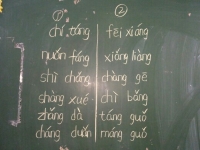 ① ②
chí táng fēi xiáng
nuǎn fáng xiǎng liàng
shì chǎng chàng gē
shàng xué chì bǎng
zhǎng dà táng guǒ
cháng duǎn máng guǒ